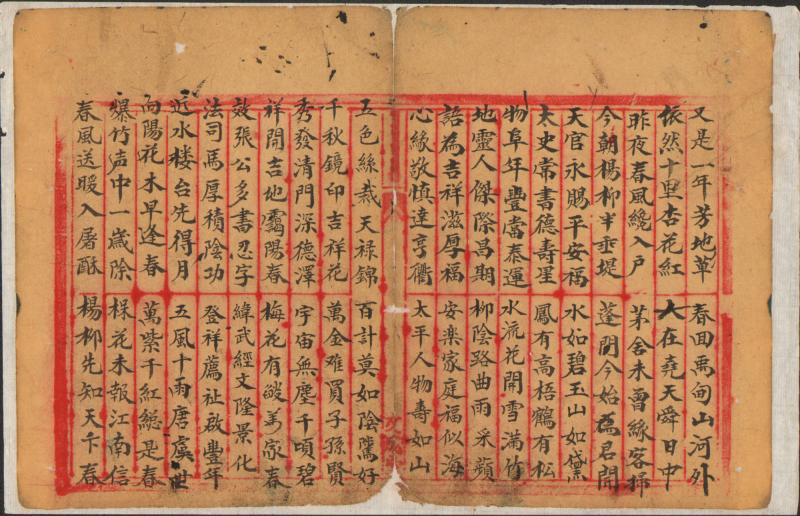 又是一年芳地草 春回禹甸山河外
依然十里杏花紅 人在堯天舜日中
昨夜春風纔入戶 茅舍未曾緣客掃
今朝楊柳半垂堤 蓬門今始為君開
天官永賜平安福 水如碧玉山如黛
太史常書德壽星 鳳有高梧鶴有松
物阜年豐當泰運 水流花開雪滿竹
地靈人傑際昌期 柳陰路曲雨采蘋
語為吉祥滋厚福 安楽家庭福似海
心緣敬慎達亨衢 太平人物壽如山
五色絲裁天祿錦 百計莫如陰騭好
千秋鏡印吉祥花 萬金难買子孫賢
秀發清門深德澤 宇宙無塵千頃碧
祥開吉地靄陽春 梅花有萬家春
效張公多書忍字 緯武經文隆景化
法司馬厚積陰功 登祥薦祉啟豐年
近水楼台先得月 五風十雨唐虞世
向陽花木早逢春 萬紫千紅總是春
爆竹声中一歲除 花未報江南信
春風送暖入屠酥 楊柳先知天下春